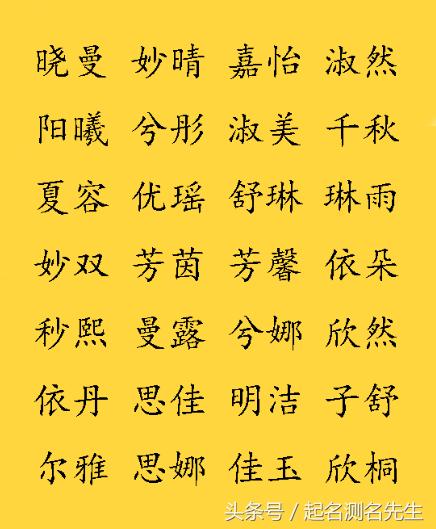 晓曼 妙晴 嘉怡 淑然
阳曦 兮彤 淑美 千秋
夏容 优瑶 舒琳 琳雨
妙双 芳茵 芳馨 依朵
秒熙 曼露 兮娜 欣然
依丹 思佳 明洁 子舒
尔雅 思娜 佳玉 欣桐
头条号 / 起名测名先生